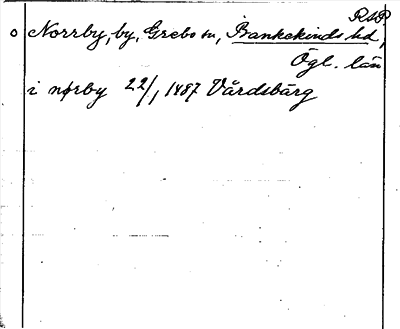 RAP
o Norrby, by, Grebo sn, Bankekinds hd,
Ögl. län
i nørby 22/1 1487 Vårdsbärg